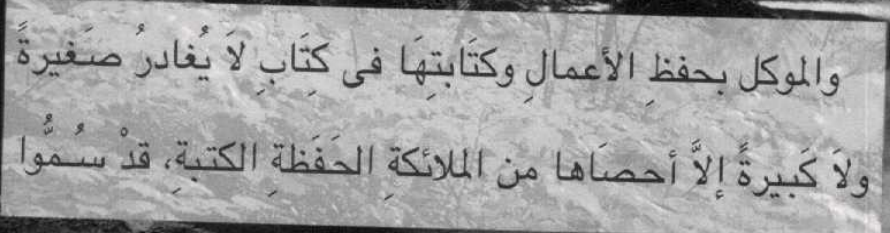 والموكل بحفظِ الأعمالِ وكتَابتِهَا فى كِتَابِ لاَ يُغادرُ صَغيرةً
ولاَ كَبيرةً إلاَّ أحصَاها من الملائكةِ الحَفَظةِ الكتبةِ، قدْ سُمُّوا